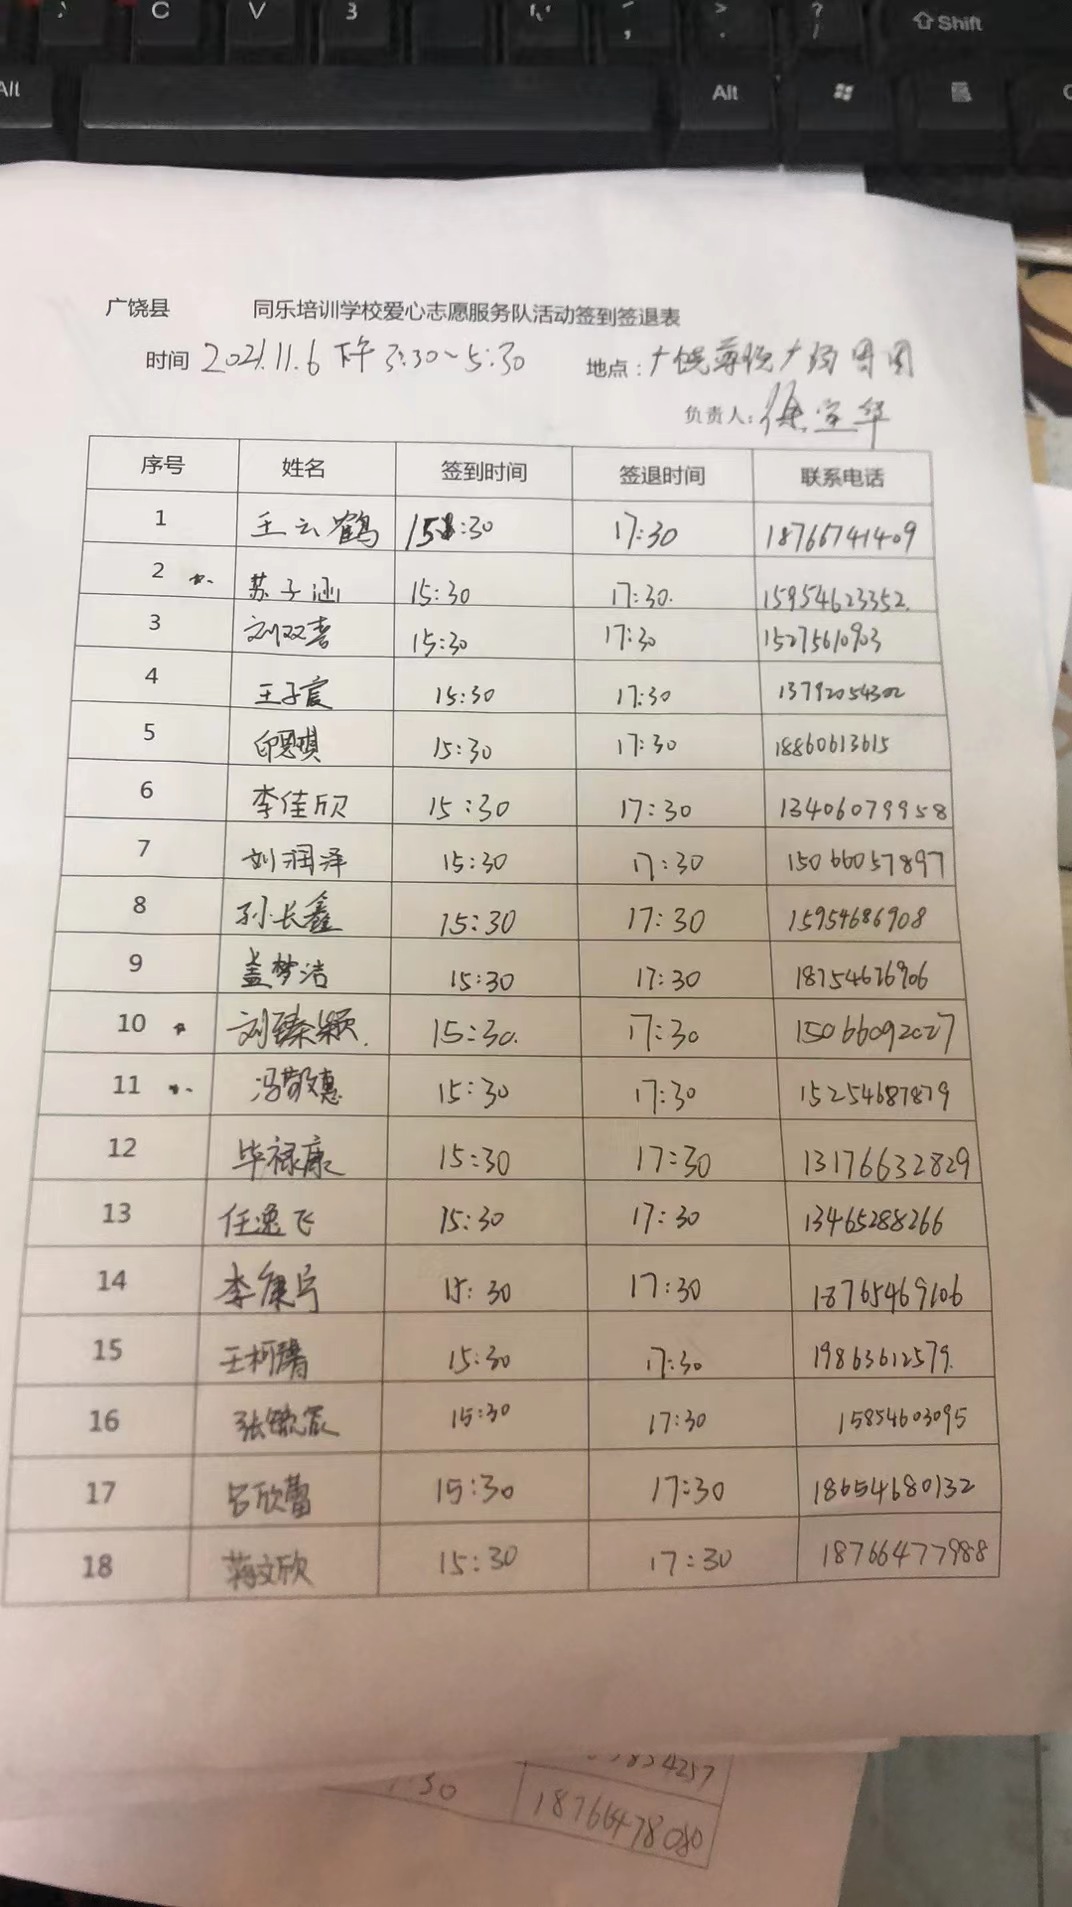 C V 3 ? ⇧Shift
Alt Alt
广饶县 同乐培训学校爱心志愿服务队活动签到签退表
时间 2021.11.6 下午 3:30~5:30 地点: 广饶 广场
负责人:
序号 姓名 签到时间 签退时间 联系电话
1 王云鹤 15:30 17:30 18766741409
2 苏子涵 15:30 17:30. 15954623352.
3 刘双喜 15:30 17:30 15275610903
4 王子宸 15:30 17:30 13792054302
5 15:30 17:30 18860613615
6 李佳欣 15:30 17:30 13406079958
7 刘润泽 15:30 17:30 15066057897
8 孙长鑫 15:30 17:30 15954686908
9 盖梦洁 15:30 17:30 18754676906
10 刘臻颖. 15:30. 17:30 15066092027
11 冯敬惠 15:30 17:30 15254687879
12 毕禄康 15:30 17:30 13176632829
13 任逸飞 15:30 17:30 13465288266
14 李康宁 15:30 17:30 18765469106
15 15:30 17:30 19863612579.
16 15:30 17:30 15854603095
17 吕欣蕾 15:30 17:30 18654680132
18 蒋文欣 15:30 17:30 18766477988
834257
:30 18766478080